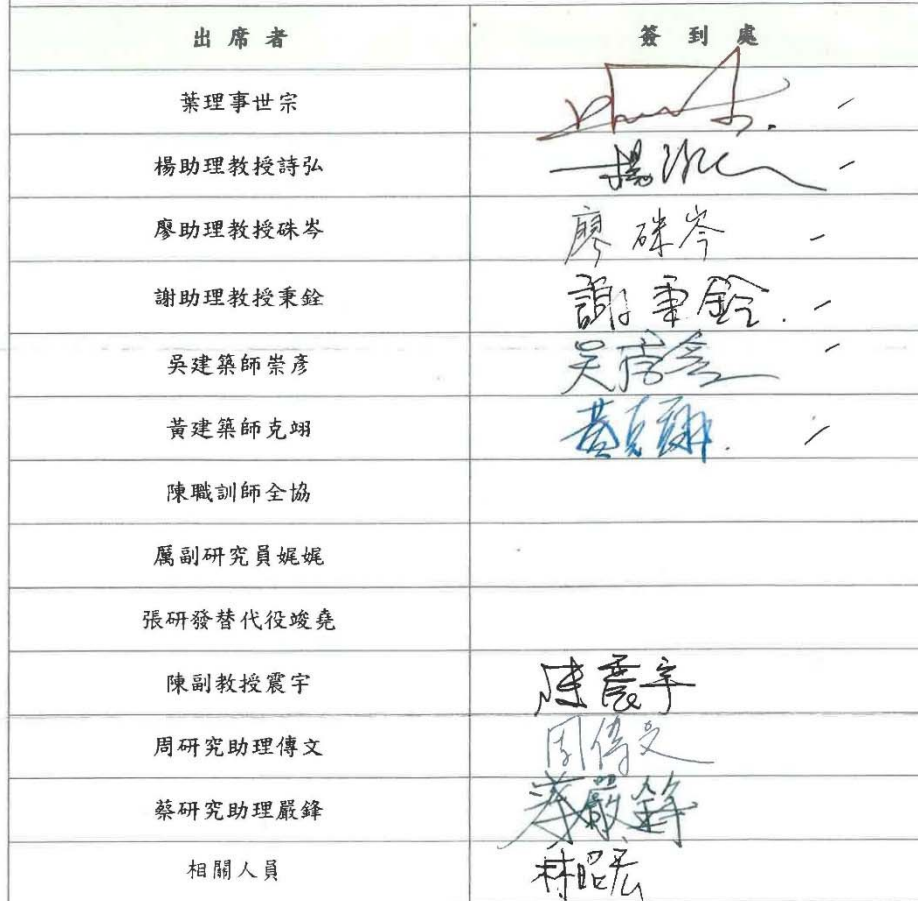 出席者 簽到處
葉理事世宗
楊助理教授詩弘 楊詩弘
廖助理教授硃岑 廖硃岑
謝助理教授秉銓 謝秉銓
吳建築師崇彥 吳崇彥
黃建築師克翊 黃克翊
陳職訓師全協
厲副研究員娓娓
張研發替代役竣堯
陳副教授震宇 陳震宇
周研究助理傳文 周傳文
蔡研究助理嚴鋒 蔡嚴鋒
相關人員 林昭宏